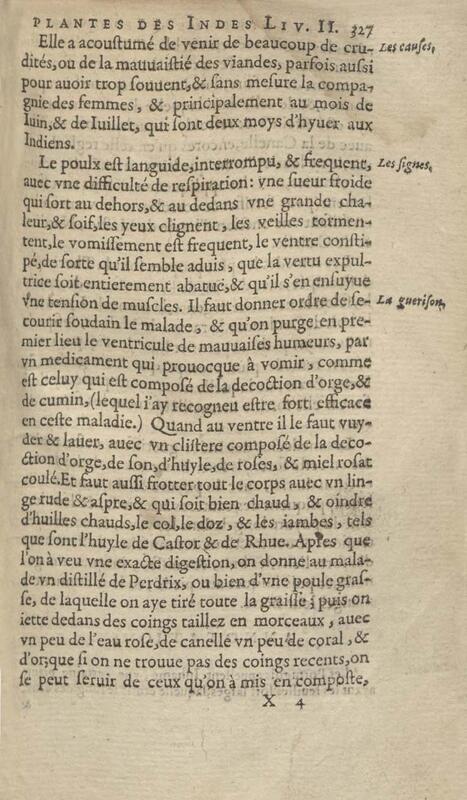 PLANTES DES INDES LIV. II. 327
Elle a acoustumé de venir de beaucoup de cru- Les causes.
dités, ou de la mauuaistié des viandes, parfois aussi
pour auoir trop souuent, & sans mesure la compa-
gnie des femmes, & principalement au mois de
Iuin, & de Iuillet, qui sont deux moys d'hyuer aux
Indiens.
Le poulx est languide, interrompu, & frequent, Les signes.
auec vne difficulté de respiration: vne sueur froide
qui sort au dehors, & au dedans vne grande cha-
leur, & soif, les yeux clignent, les veilles tormen-
tent, le vomissement est frequent, le ventre consti-
pé, de sorte qu'il semble aduis, que la vertu expul-
trice soit entierement abatuë, & qu'il s'en ensuyue
vne tension de muscles. Il faut donner ordre de se- La guerison.
courir soudain le malade, & qu'on purge en pre-
mier lieu le ventricule de mauuaises humeurs, par
vn medicament qui prouocque à vomir, comme
est celuy qui est composé de la decoction d'orge, &
de cumin, (lequel i'ay recogneu estre fort efficace
en ceste maladie.) Quand au ventre il le faut vuy-
der & lauer, auec vn clistere composé de la deco-
ction d'orge, de son, d'huyle, de roses, & miel rosat
coulé. Et faut aussi frotter tout le corps auec vn lin-
ge rude & aspre, & qui soit bien chaud, & oindre
d'huilles chauds, le col, le doz, & les iambes, tels
que sont l'huyle de Castor & de Rhue. Apres que
l'on à veu vne exacte digestion, on donne au mala-
de vn distillé de Perdrix, ou bien d'vne poule gras-
se, de laquelle on aye tiré toute la graisse; puis on
iette dedans des coings taillez en morceaux, auec
vn peu de l'eau rose, de canelle vn peu de coral, &
d'or; que si on ne trouue pas des coings recents, on
se peut seruir de ceux qu'on à mis en composte,
X 4